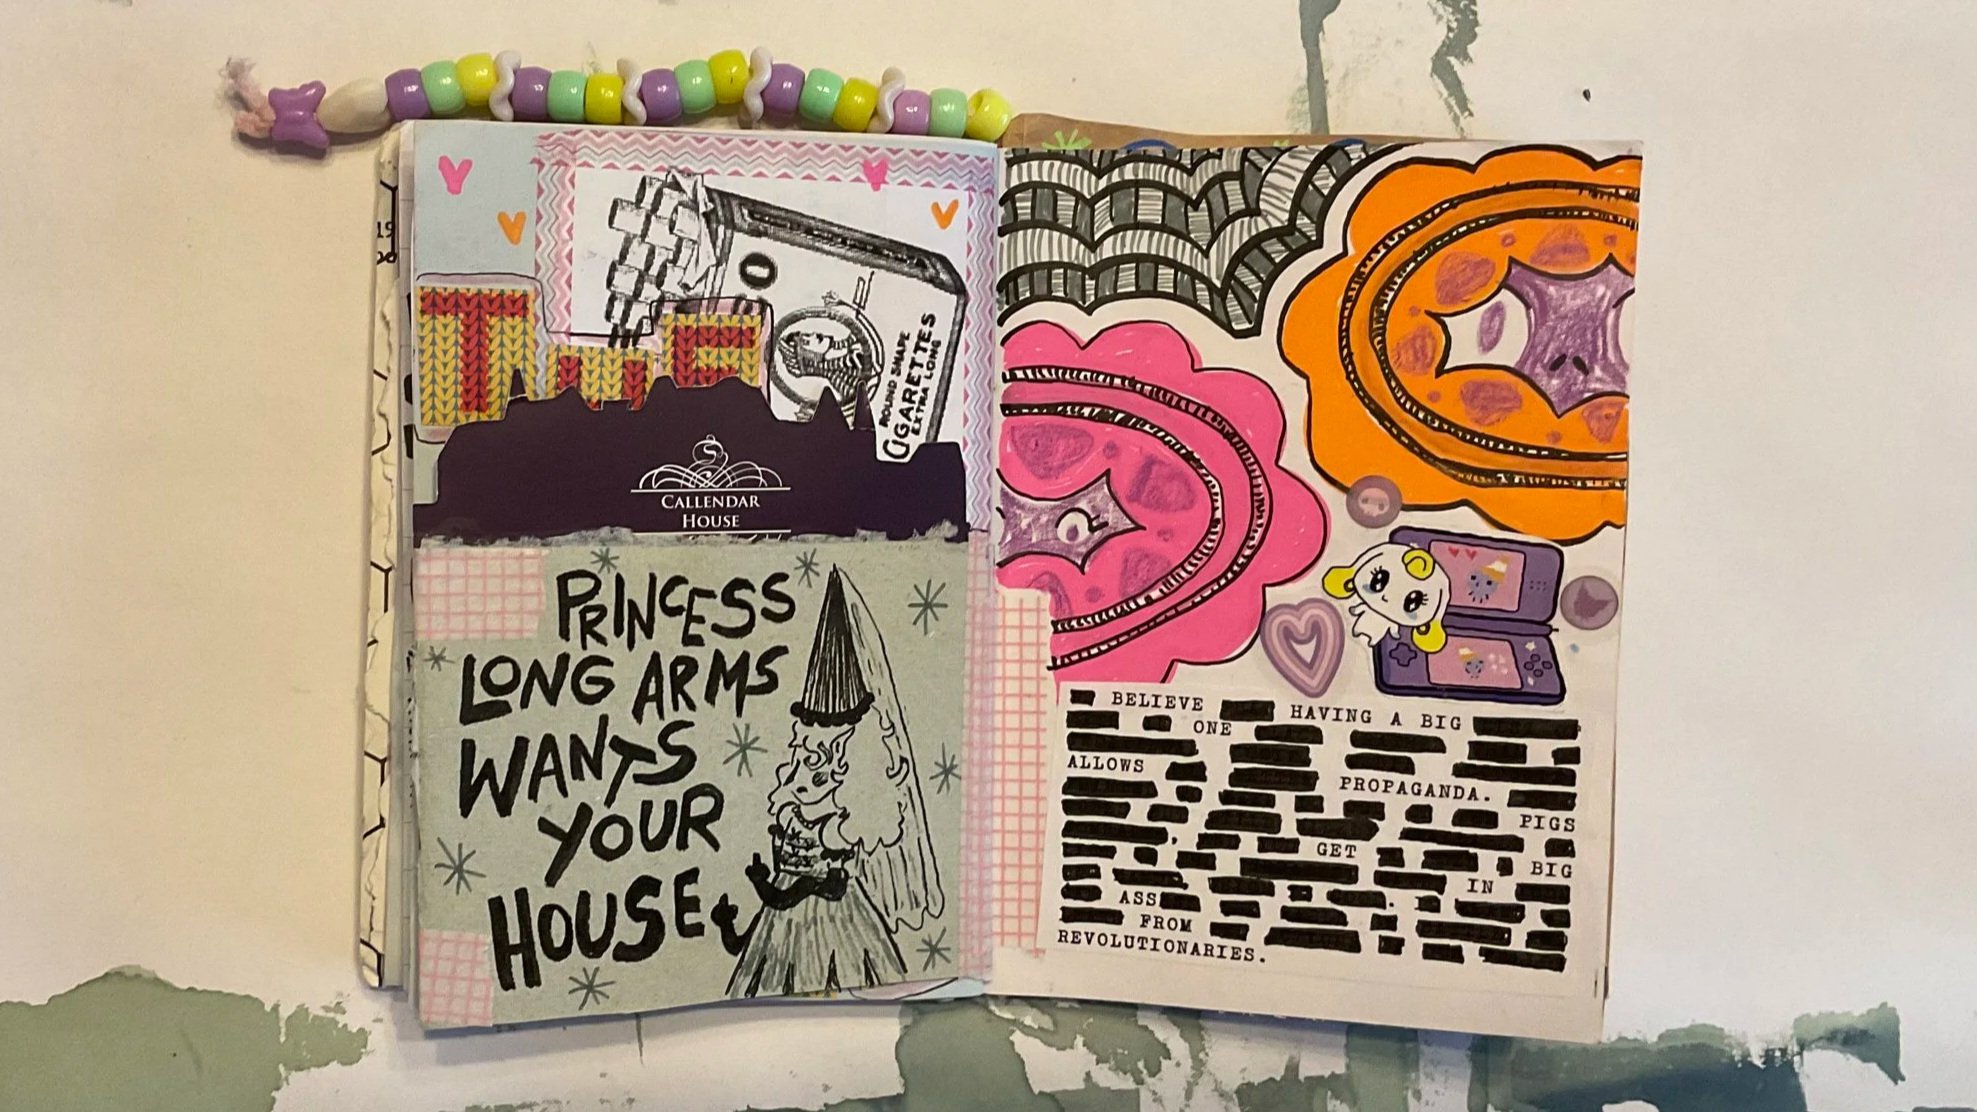 THE
ROUND SHAPE
CIGARETTES
EXTRA LONG
CALLENDAR
HOUSE
PRINCESS
LONG ARMS
WANTS
YOUR
HOUSE
BELIEVE HAVING A BIG
ONE
ALLOWS PROPAGANDA.
PIGS
GET BIG
IN
ASS
FROM
REVOLUTIONARIES.